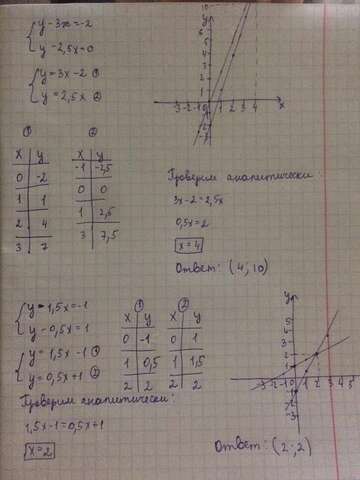 y-3x=-2
y-2,5x=0
y=3x-2 ①
y=2,5x ②
①
x y
0 -2
1 1
2 4
3 7
②
x y
-1 -2,5
0 0
1 2,5
3 7,5
Проверим аналитически
3x-2=2,5x
0,5x=2
x=4
Ответ: (4;10)
y-1,5x=-1
y-0,5x=1
y=1,5x-1 ①
y=0,5x+1 ②
①
x y
0 -1
1 0,5
2 2
②
x y
0 1
1 1,5
2 2
Проверим аналитически:
1,5x-1=0,5x+1
x=2
Ответ: (2;2)